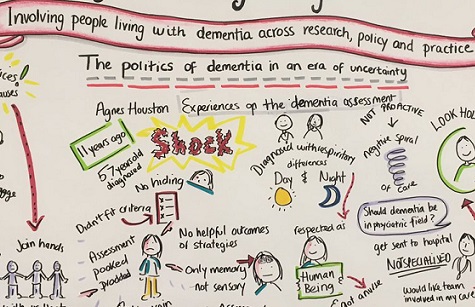 Involving people living with dementia across research, policy and practice
The politics of dementia in an era of uncertainty
Agnes Houston
Experiences of the dementia assessment
11 years ago
57 year old
diagnosed
Shock
No hiding
Didn't fit criteria
Assessment
poked
prodded
No helpful outcomes
of strategies
Only memory
not sensory
Diagnosed with
differences
Day & Night
respected as
Human
Being
NOT PROACTIVE
negative spiral
of care
Should dementia be
in psychiatric field?
get sent to hospital
NOT SPECIALISED
Would like team
involved in my care
LOOK
Join hands